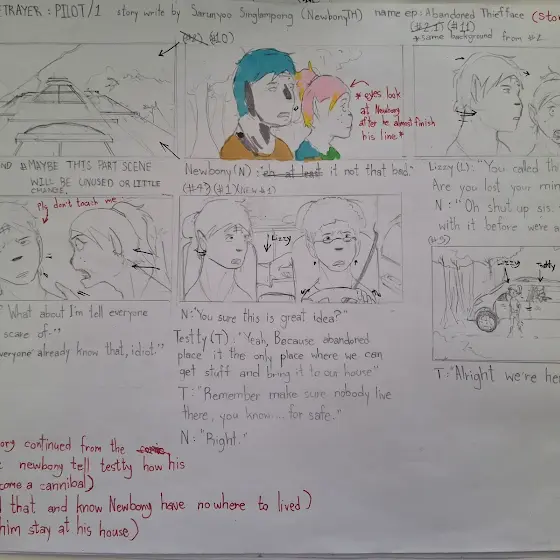 ETRAYER : PILOT/1 story write by Sarunyoo Singlampong (NewbonyTH) name ep: Abandoned Thief face (Sto
(#10)
(#11)
* same background from #1
* eyes look
at Newbony
after he almost finish
his line *
# MAYBE THIS PART SCENE
WILL BE UNUSED OR LITTLE
CHANGE,
Newbony (N): it not that bad."
Lizzy (L): "You called thi
Are you lost your mi
N : "Oh shut up sis
with it before were a
(#4) (#1)
plz don't teach me
Lizzy
(#5)
Lizzy
? What about I'm tell everyone
scare of."
veryone already know that, idiot."
N: "You sure this is great idea?"
Testty (T) : "Yeah, Because abandoned
place it the only place where we can
get stuff and bring it to our house"
T: "Remember make sure nobody live
there, you know.... for safe."
N: "Right."
T: "Alright we're he
ory continued from the
newbony tell testty how his
come a cannibal)
d that and know Newbony have nowhere to lived)
him stay at his house)